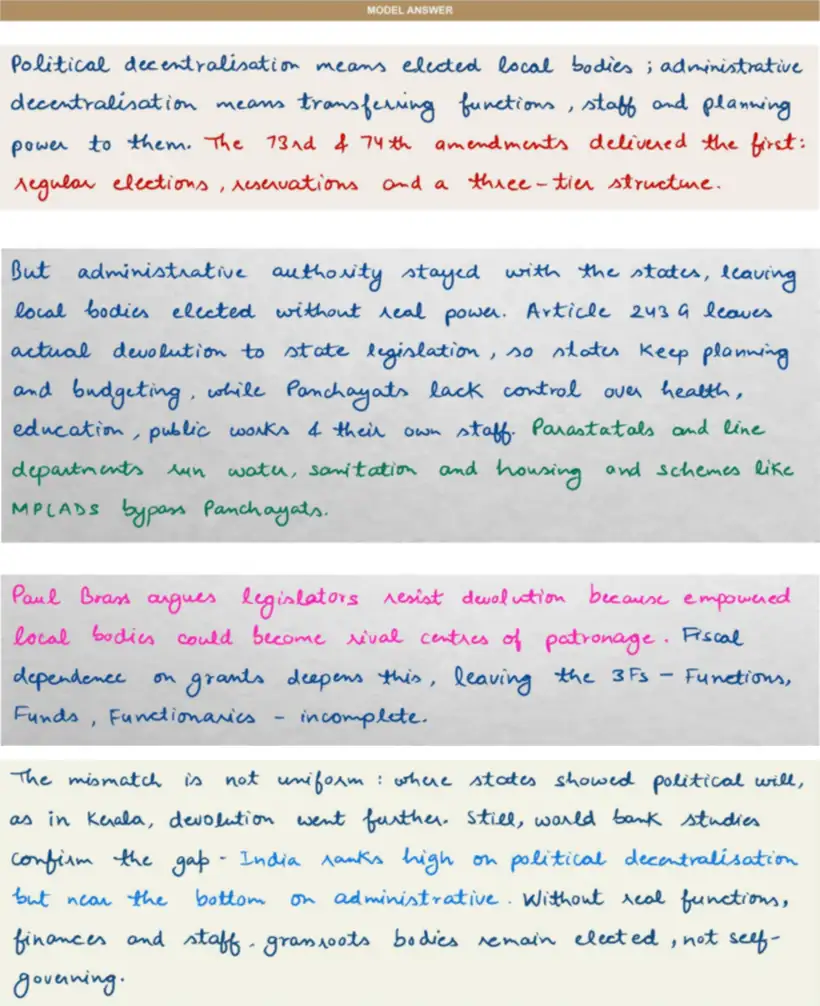 MODEL ANSWER
Political decentralisation means elected local bodies ; administrative
decentralisation means transferring functions , staff and planning
power to them. The 73rd & 74th amendments delivered the first:
regular elections , reservations and a three-tier structure.
But administrative authority stayed with the states, leaving
local bodies elected without real power. Article 243 G leaves
actual devolution to state legislation , so states keep planning
and budgeting, while Panchayats lack control over health,
education , public works & their own staff. Parastatals and line
departments run water, sanitation and housing and schemes like
MPLADS bypass Panchayats.
Paul Brass argues legislators resist devolution because empowered
local bodies could become rival centres of patronage. Fiscal
dependence on grants deepens this, leaving the 3Fs – Functions,
Funds, Functionaries – incomplete.
The mismatch is not uniform : where states showed political will,
as in Kerala, devolution went further. Still, world bank studies
confirm the gap - India ranks high on political decentralisation
but near the bottom on administrative. Without real functions,
finances and staff, grassroots bodies remain elected , not self-
governing.